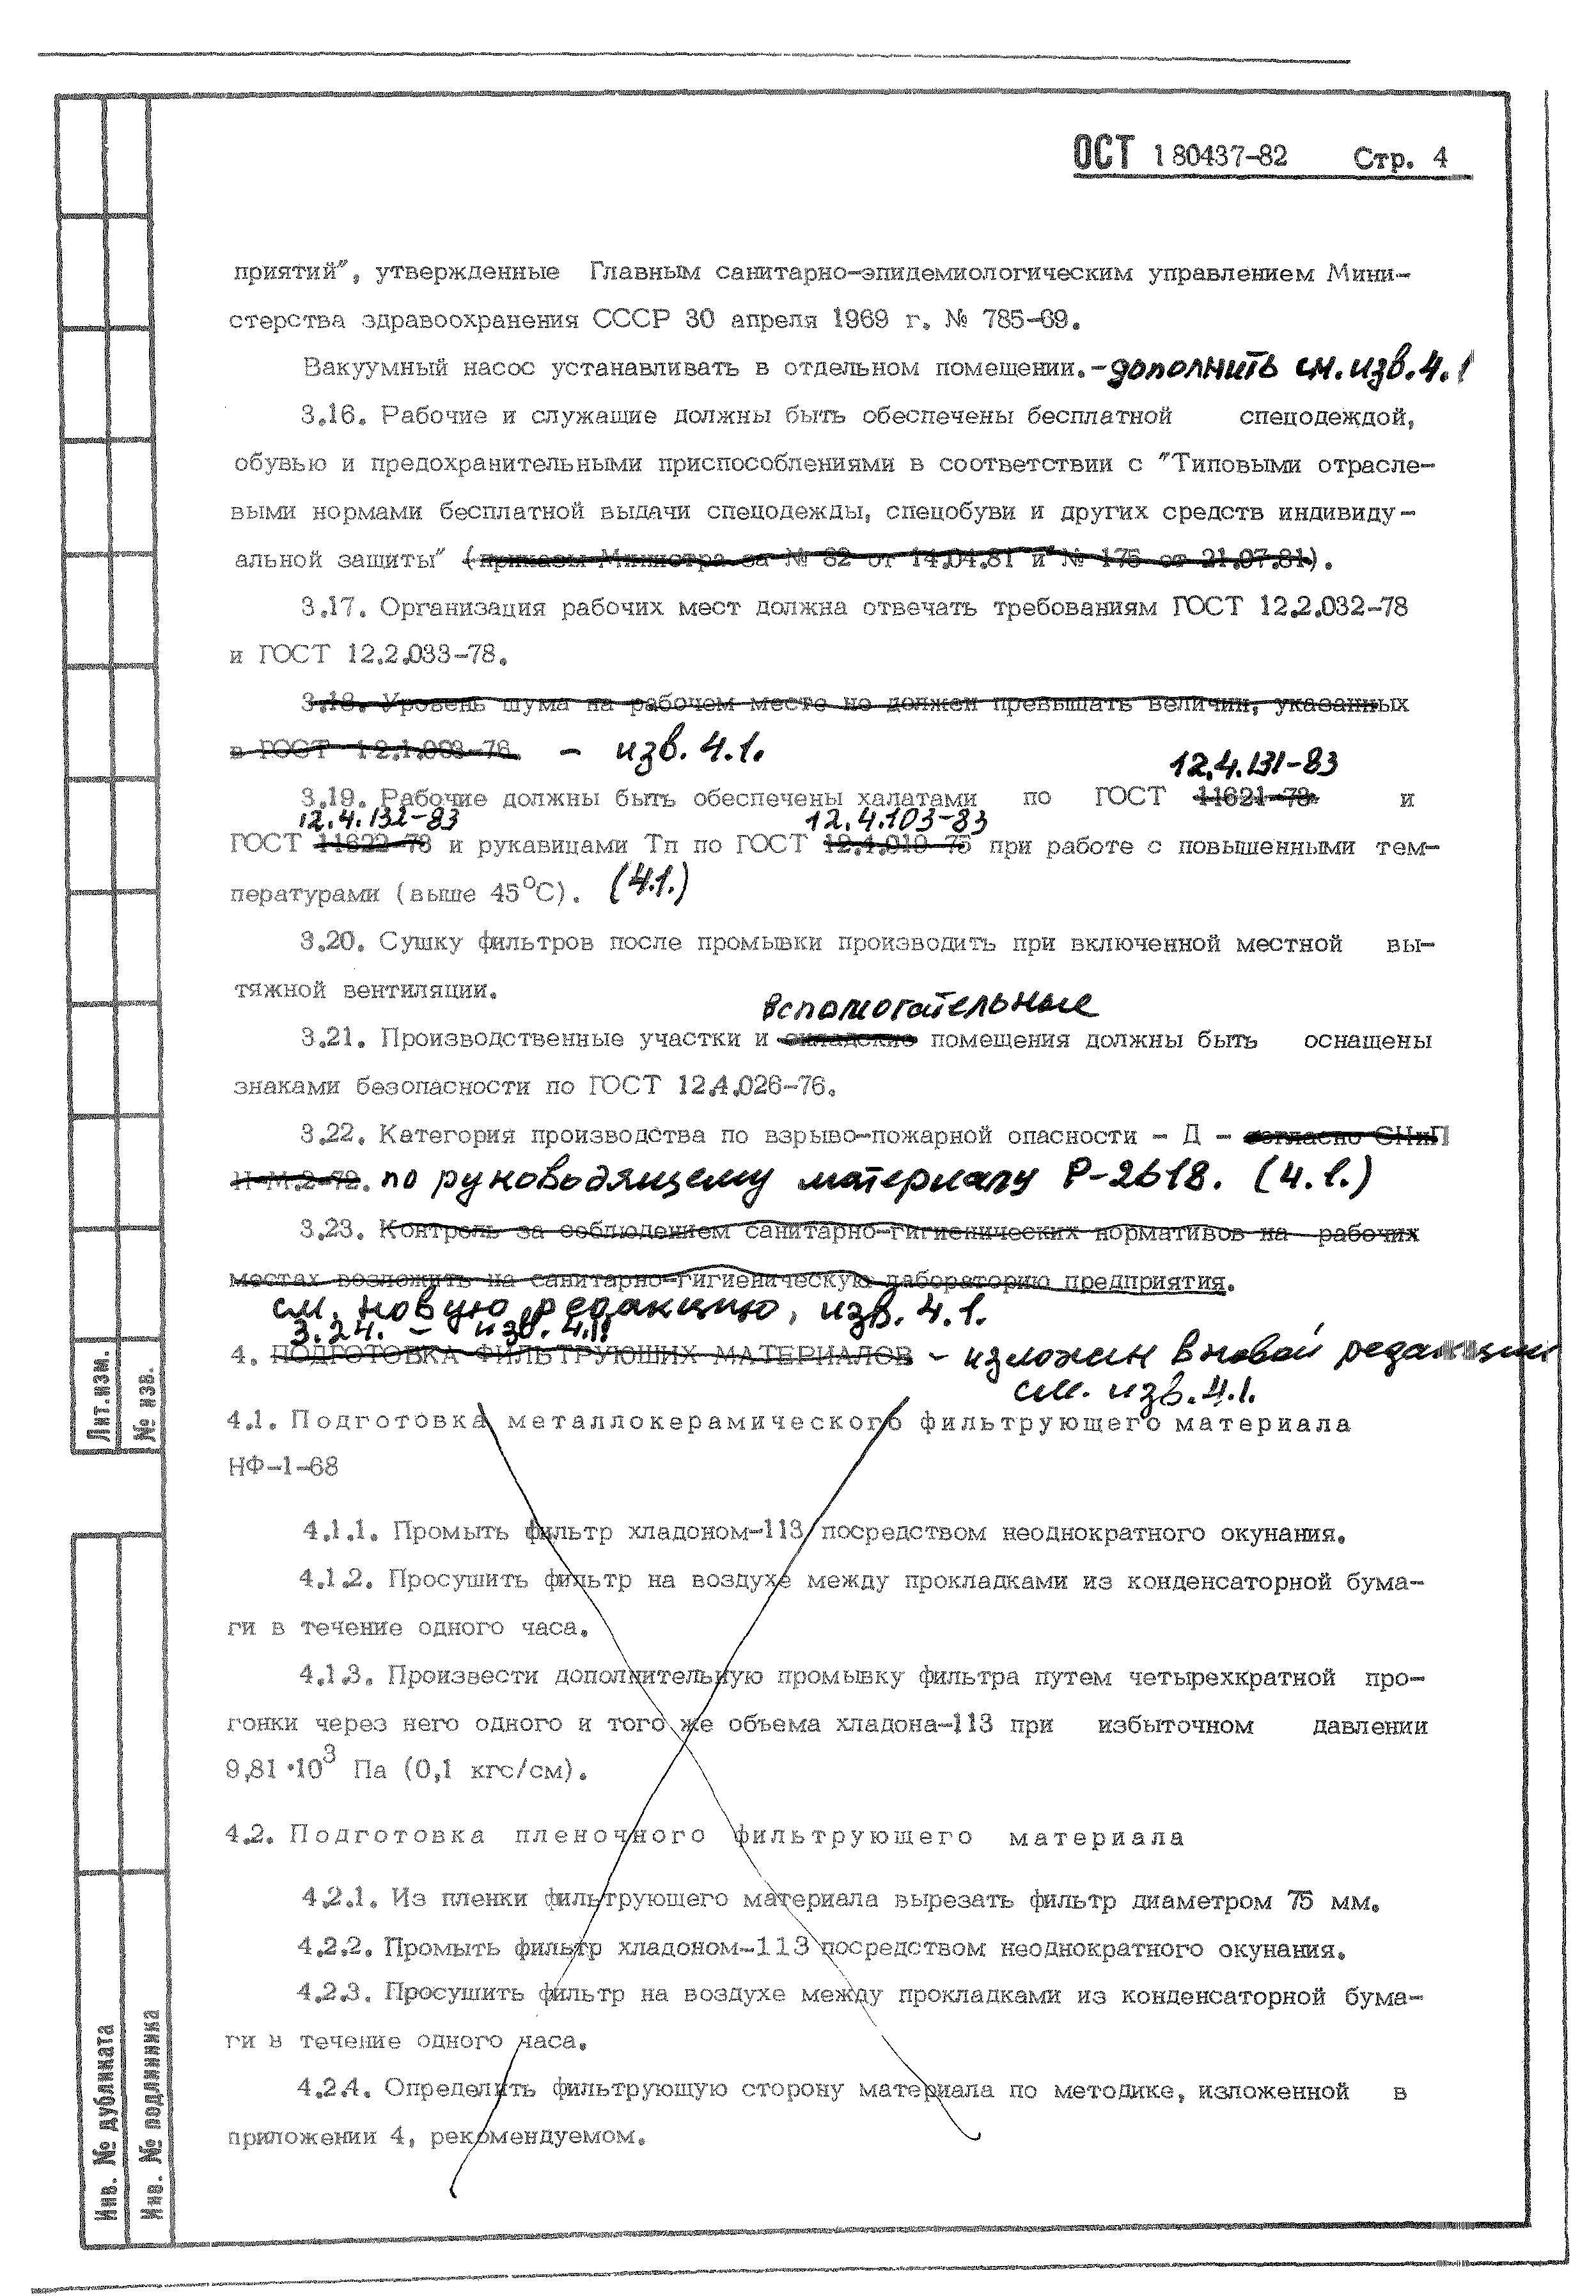 ОСТ 1 80437-82 Стр. 4
приятий", утвержденные Главным санитарно-эпидемиологическим управлением Мини-
стерства здравоохранения СССР 30 апреля 1969 г. № 785-69.
Вакуумный насос устанавливать в отдельном помещении. - дополнить см. изв. 4.1
3.16. Рабочие и служащие должны быть обеспечены бесплатной спецодеждой,
обувью и предохранительными приспособлениями в соответствии с "Типовыми отрасле-
выми нормами бесплатной выдачи спецодежды, спецобуви и других средств индивиду-
альной защиты" (приказы Министра за № 82 от 14.04.81 и № 175 от 21.07.81).
3.17. Организация рабочих мест должна отвечать требованиям ГОСТ 12.2.032-78
и ГОСТ 12.2.033-78.
3.18. Уровень шума на рабочем месте не должен превышать величин, указанных
в ГОСТ 12.1.003-76. - изв. 4.1.
12.4.131-83
3.19. Рабочие должны быть обеспечены халатами по ГОСТ 11621-73 и
12.4.132-83 12.4.103-83
ГОСТ 11622-73 и рукавицами Тп по ГОСТ 12.4.010-75 при работе с повышенными тем-
пературами (выше 45°С). (4.1.)
3.20. Сушку фильтров после промывки производить при включенной местной вы-
тяжной вентиляции.
вспомогательные
3.21. Производственные участки и складские помещения должны быть оснащены
знаками безопасности по ГОСТ 12.4.026-76.
3.22. Категория производства по взрыво-пожарной опасности - Д - согласно СНиП
II-М.2-72. по руководящему материалу Р-2618. (4.1.)
3.23. Контроль за соблюдением санитарно-гигиенических нормативов на рабочих
местах возложить на санитарно-гигиеническую лабораторию предприятия.
см. новую редакцию, изв. 4.1.
3.24. - изв. 4.1.
4. ПОДГОТОВКА ФИЛЬТРУЮЩИХ МАТЕРИАЛОВ - изложен в новой редакции
см. изв. 4.1.
4.1. Подготовка металлокерамического фильтрующего материала
НФ-1-68
4.1.1. Промыть фильтр хладоном-113 посредством неоднократного окунания.
4.1.2. Просушить фильтр на воздухе между прокладками из конденсаторной бума-
ги в течение одного часа.
4.1.3. Произвести дополнительную промывку фильтра путем четырехкратной про-
гонки через него одного и того же объема хладона-113 при избыточном давлении
9,81·10³ Па (0,1 кгс/см).
4.2. Подготовка пленочного фильтрующего материала
4.2.1. Из пленки фильтрующего материала вырезать фильтр диаметром 75 мм.
4.2.2. Промыть фильтр хладоном-113 посредством неоднократного окунания.
4.2.3. Просушить фильтр на воздухе между прокладками из конденсаторной бума-
ги в течение одного часа.
4.2.4. Определить фильтрующую сторону материала по методике, изложенной в
приложении 4, рекомендуемом.
Лит.изм.
№ изв.
Инв. № дубликата
Инв. № подлинника